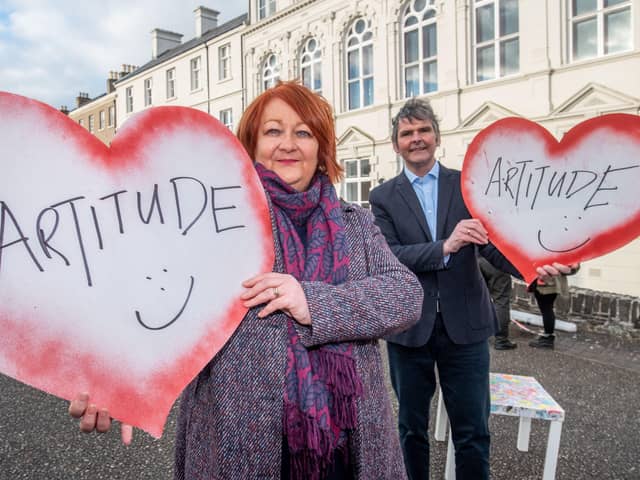 ARTITUDE
ARTITUDE